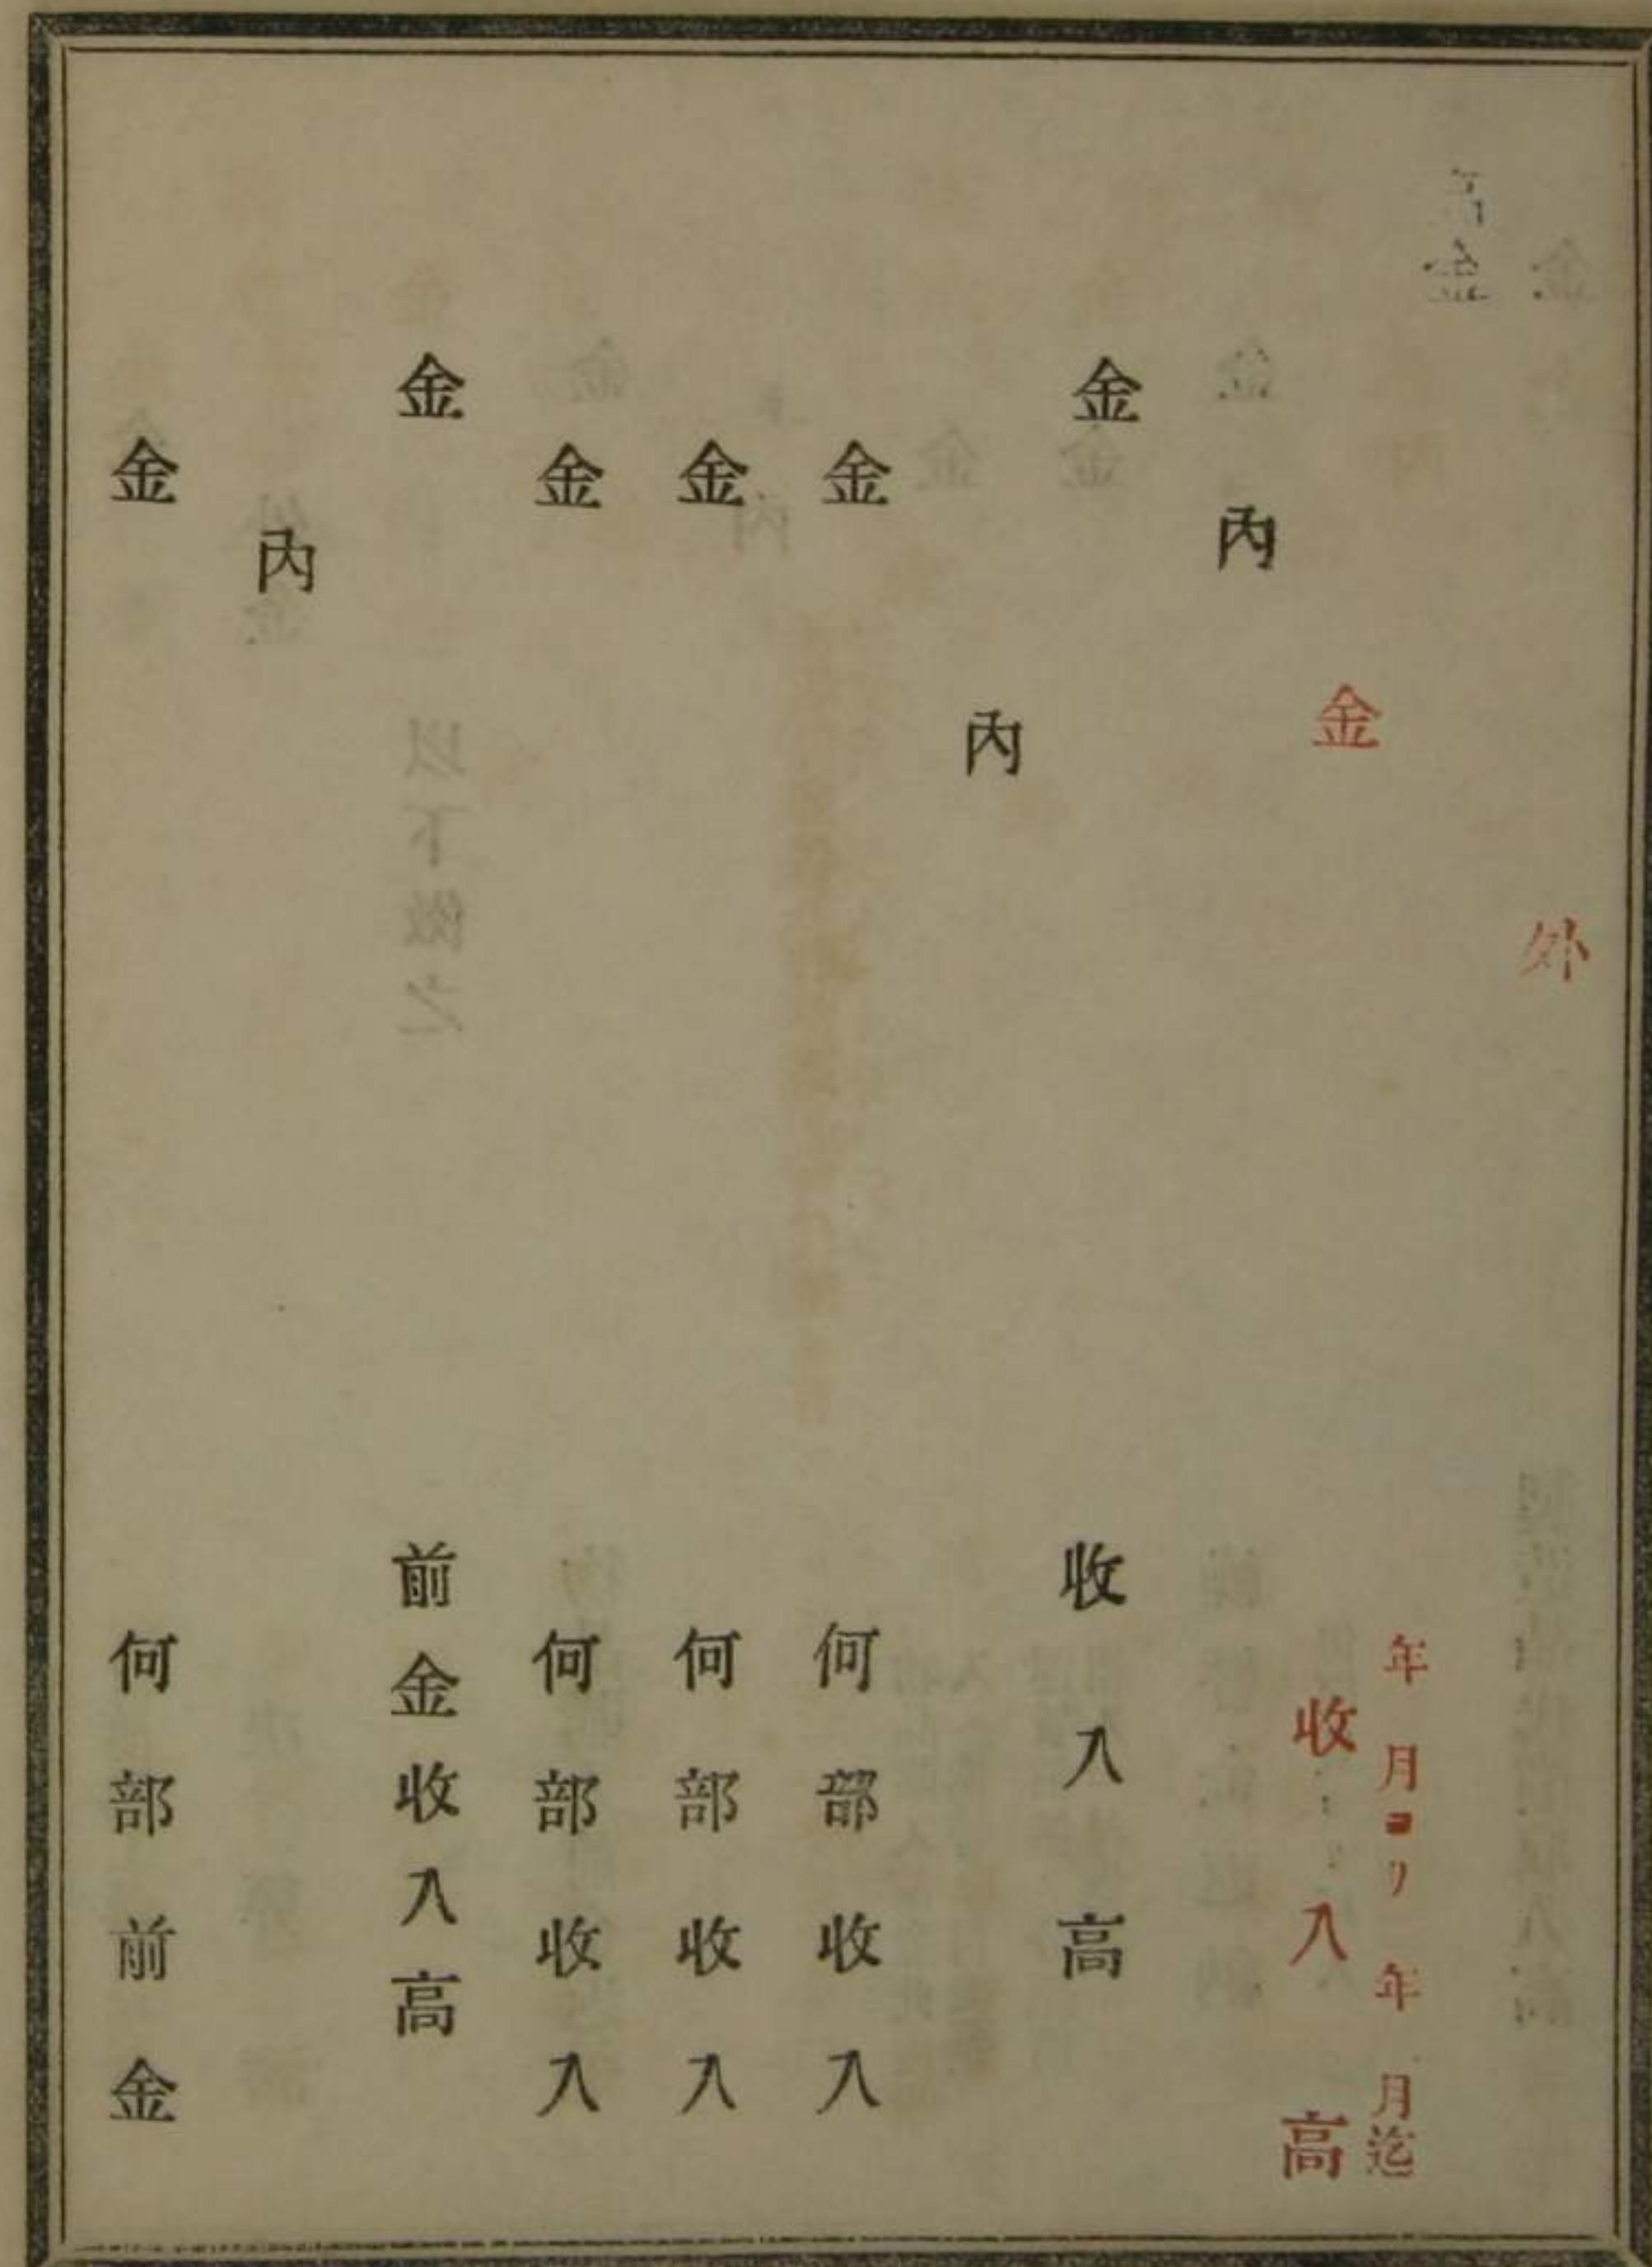 外
金 年月ヨリ年月迄
收入高
內
金 收入高
內
金 何部收入
金 何部收入
金 何部收入
金 前金收入高
內
金 何部前金